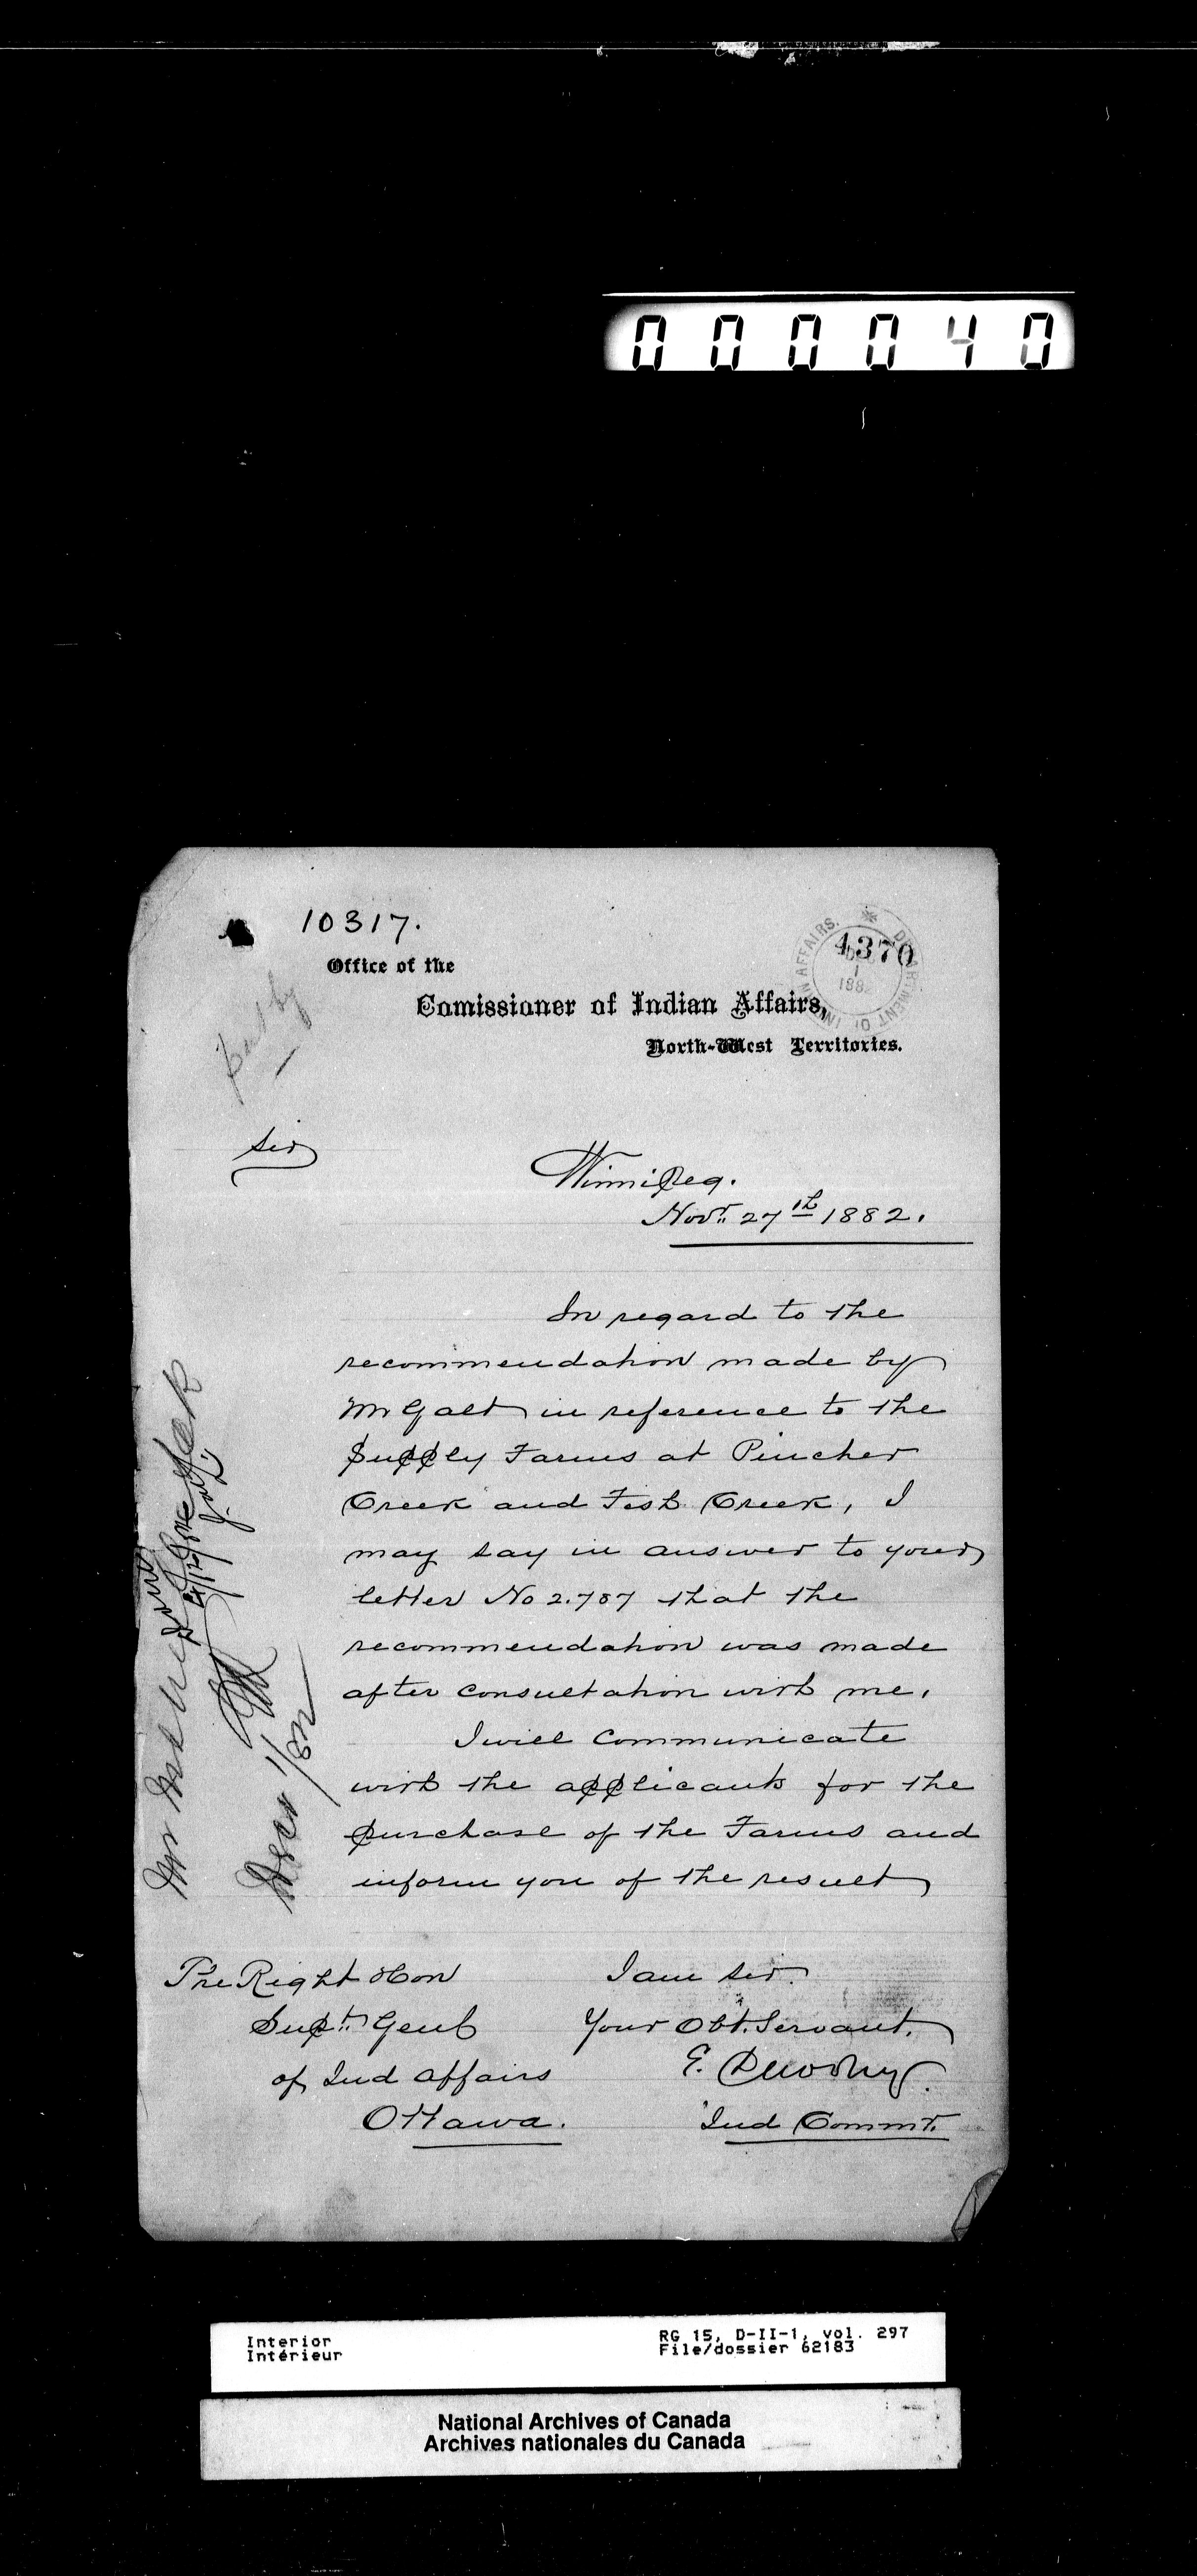 000040
10317.
4370
DEPARTMENT OF INDIAN AFFAIRS.
1
188
Office of the
Comissioner of Indian Affairs,
North-West Territories.
Sir
Winnipeg.
Novr. 27th 1882.
In regard to the
recommendation made by
Mr Galt in reference to the
Supply Farms at Pincher
Creek and Fish Creek, I
may say in answer to your
letter No 2.787 that the
recommendation was made
after consultation with me.
I will communicate
with the applicants for the
purchase of the Farms and
inform you of the result
I am Sir.
Your Obt. Servant.
E. Dewdney.
Ind Commr.
The Right Hon
Supt. Genl
of Ind Affairs
Ottawa.
Interior
Intérieur
RG 15, D-II-1, vol. 297
File/dossier 62183
National Archives of Canada
Archives nationales du Canada